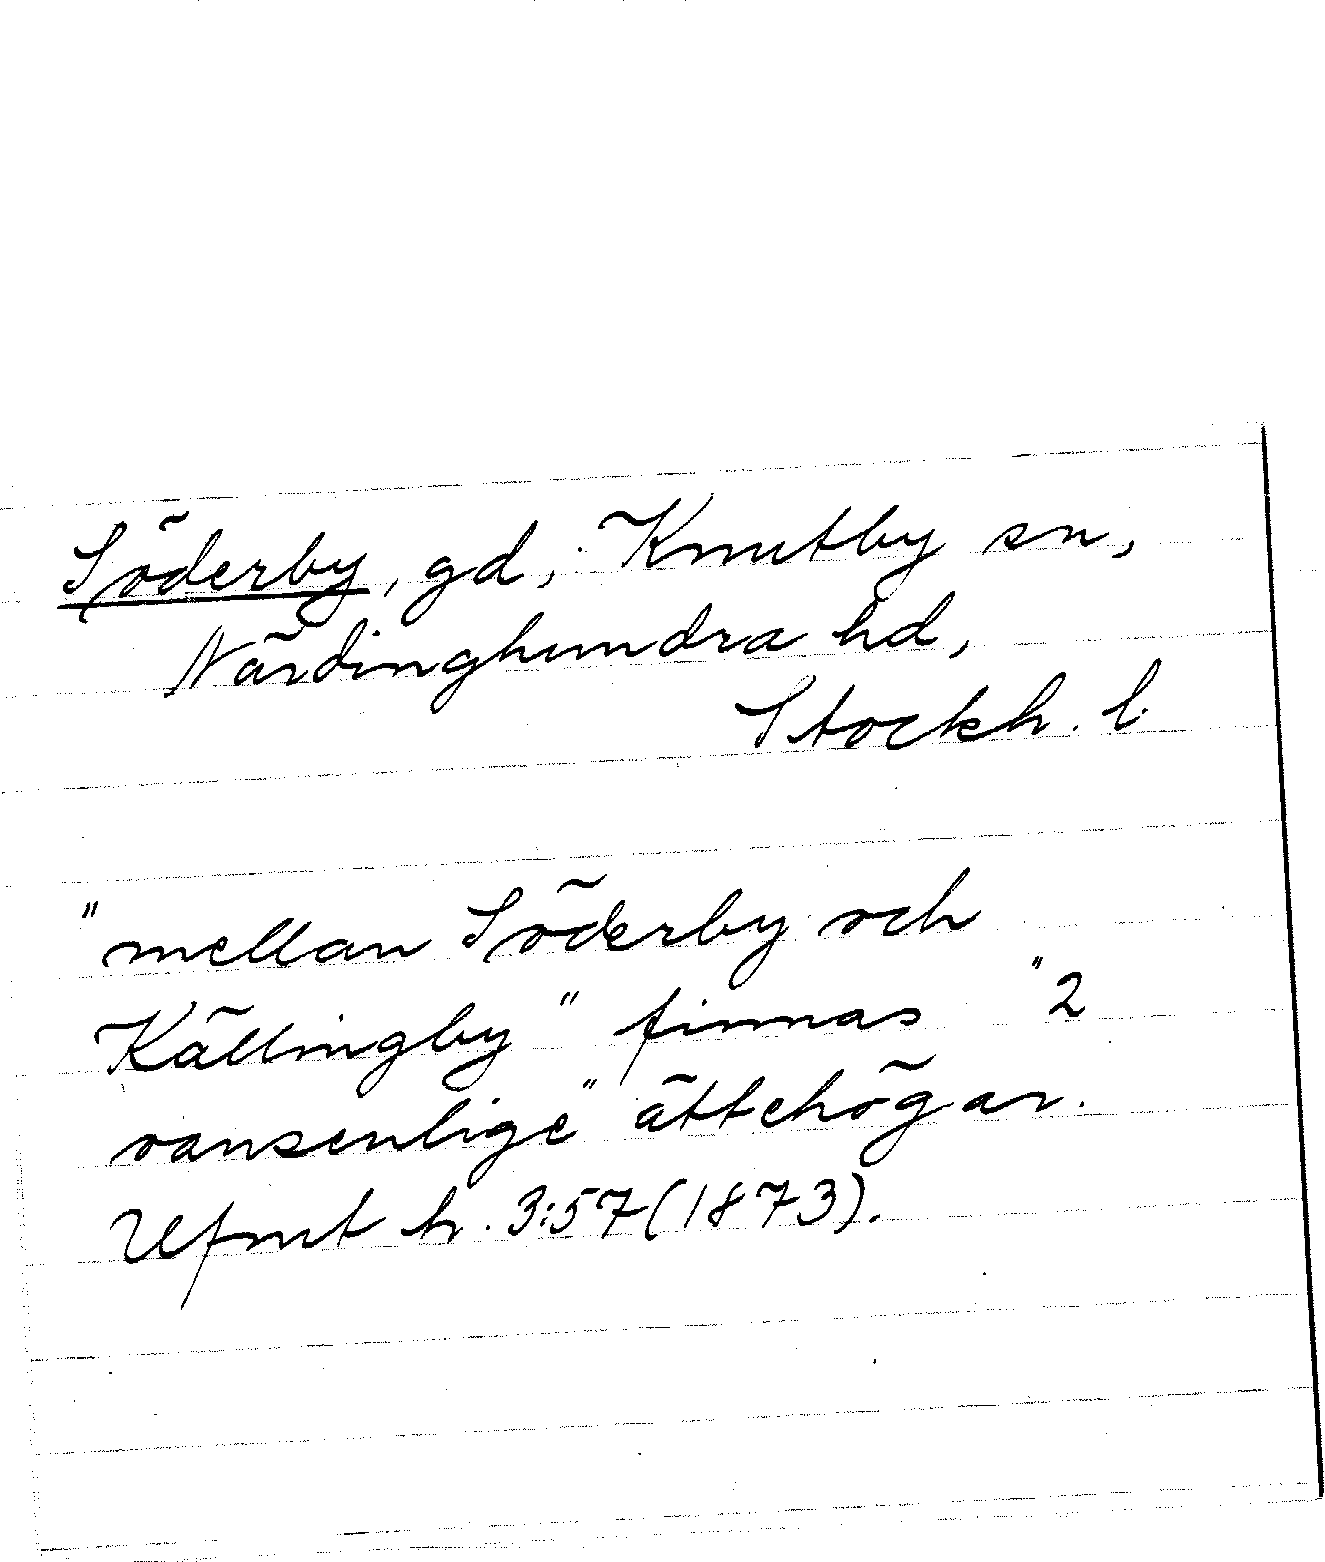 Söderby, gd, Knutby sn,
Närdinghundra hd,
Stockh. l.
"mellan Söderby och
Källingby" finnas "2
vansenlige" ättehögar.
Ufmt h. 3:57 (1873).